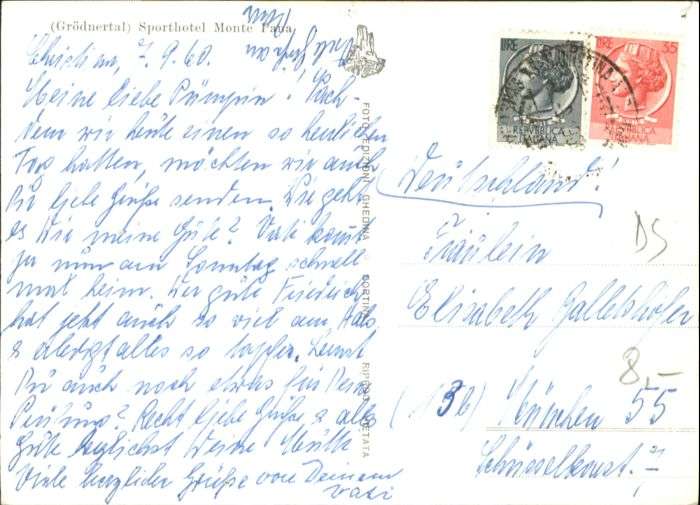 (Grödnertal) Sporthotel Monte Pana
7.9.60.
Meine liebe Pümpin! Nach-
dem wir heute einen so herrlichen
Tag hatten, möchten wir auch
Dir liebe Grüße senden. Wie geht
es Dir meine Gute? Vati kommt
ja nun am Sonntag schnell
mal heim. Der gute Friedrich
hat jetzt auch so viel am Hals
& alles so tapfer. Lernst
Du auch noch etwas für Deine
Prüfung? Recht liebe Grüße & alles
Gute herzlichst Deine Mutti
Viele herzliche Grüße von Deinem
Vati
FOTO EDIZIONI GHEDINA CORTINA
LIRE
LIRE 35
REPVBBLICA
ITALIANA
REPVBBLICA
ITALIANA
Deutschland!
DS
Fräulein
Elisabeth Galletshofer
8,-
(13b) München 55